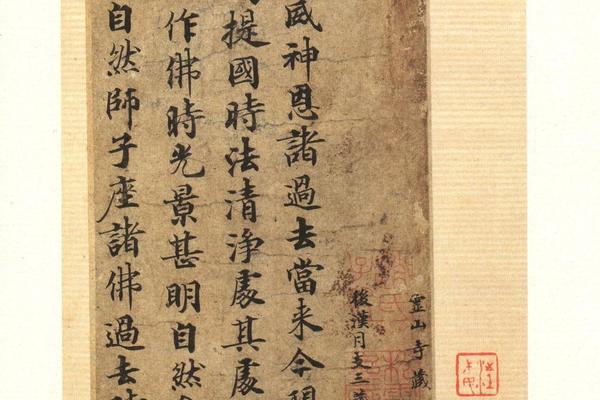 霊山寺藏
後漢月支三藏
威神恩諸過去當来今現
提國時法清浄處其處
作佛時光景甚明自然
自然師子座諸佛過去時